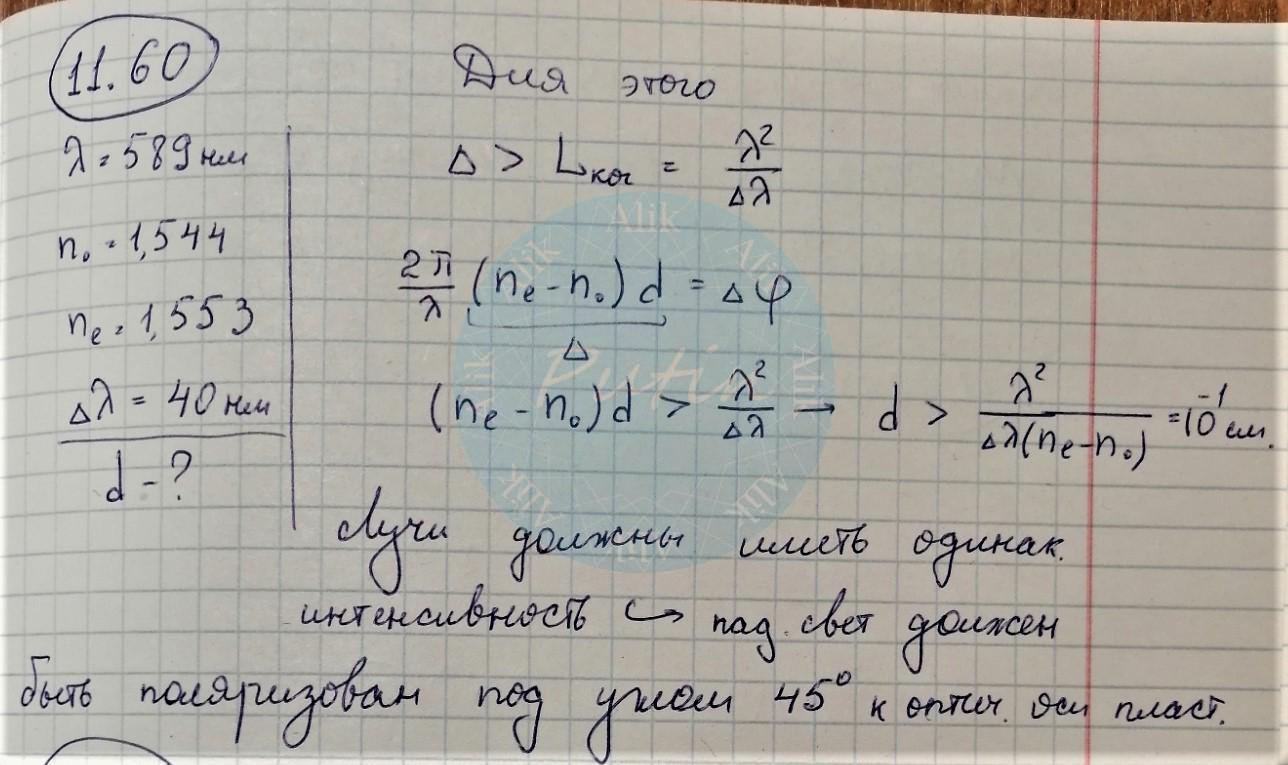 11.60
λ = 589 нм
n₀ = 1,544
nₑ = 1,553
Δλ = 40 нм
d - ?
Для этого
Δ > Lког = λ²/Δλ
2π/λ (nₑ - n₀) d = Δφ
Δ
(nₑ - n₀)d > λ²/Δλ → d > λ²/Δλ(nₑ - n₀) = 10⁻¹ см.
Лучи должны иметь одинак.
интенсивность ↪ пад. свет должен
быть поляризован под углом 45° к оптич. оси пласт.
Alik
Alik
Alik
Alik
Alik
Alik
Alik
Putin